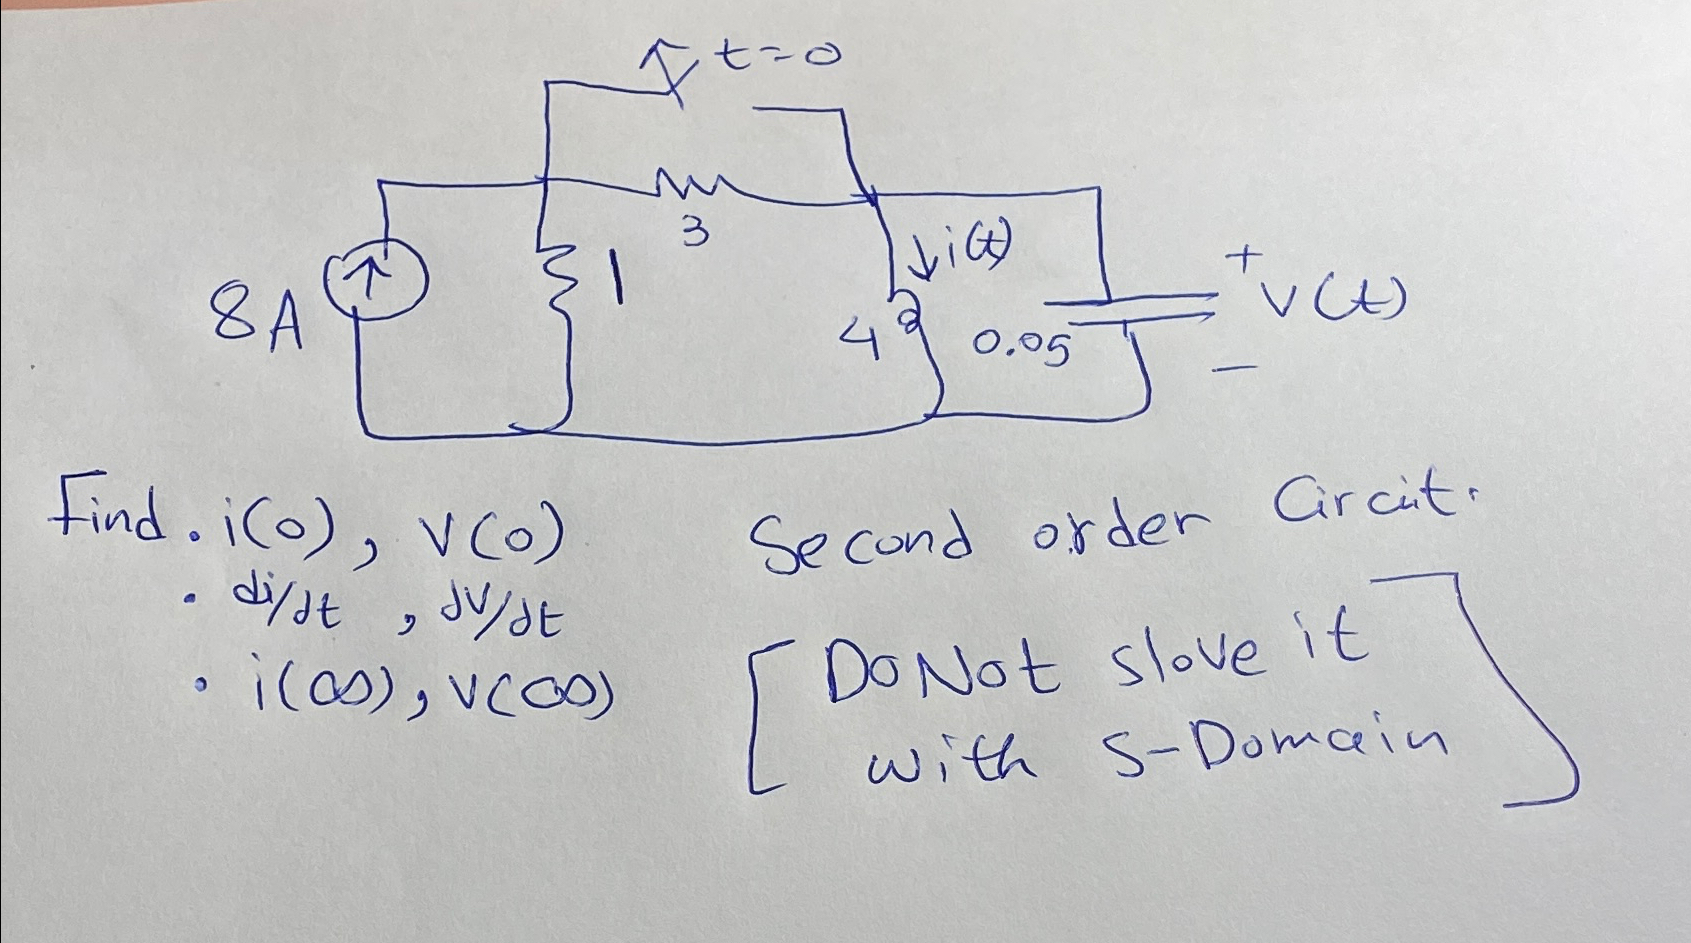 t=0
3
8A
1
i(t)
4
0.05
+
V(t)
-
Find . i(0), V(0)
. di/dt , dV/dt
. i(∞), V(∞)
Second order Circuit.
[ Do Not slove it
with S-Domain ]